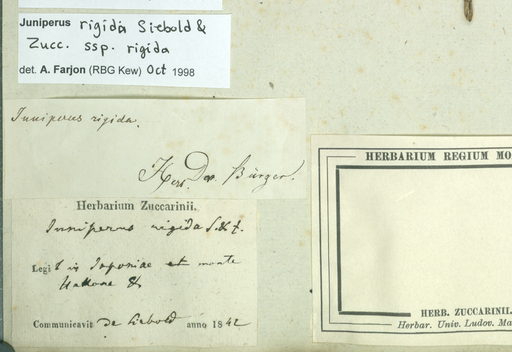 Juniperus rigida Siebold &
Zucc. ssp. rigida
det. A. Farjon (RBG Kew) Oct 1998
Juniperus rigida.
Herb. Bürger.
Herbarium Zuccarinii.
Juniperus rigida S. & Z.
Legit in Japoniae et monte
Communicavit de Siebold anno 1842
HERBARIUM REGIUM MO
HERB. ZUCCARINII.
Herbar. Univ. Ludov. Ma